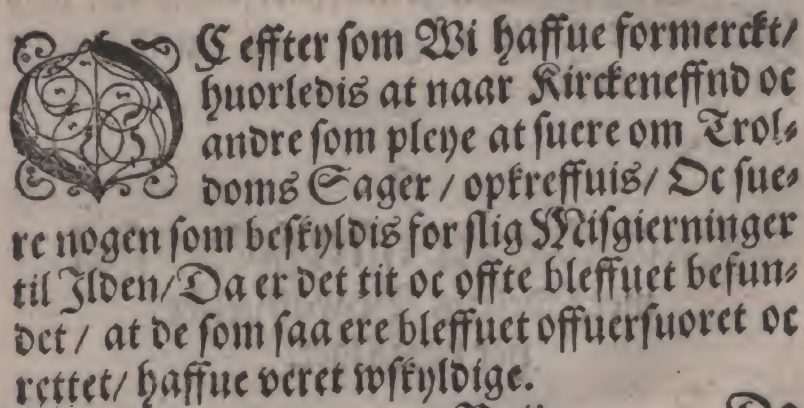 OC effter som Wi haffue formerckt/
huorledis at naar Kirckeneffnd oc
andre som pleye at suere om Trol-
doms Sager / opkreffuis/ Oc sue-
re nogen som beskyldis for slig Misgierninger
til Ilden/ Da er det tit oc offte bleffuet befun-
det / at de som saa ere bleffuet offuersuoret oc
rettet/ haffue veret wskyldige.